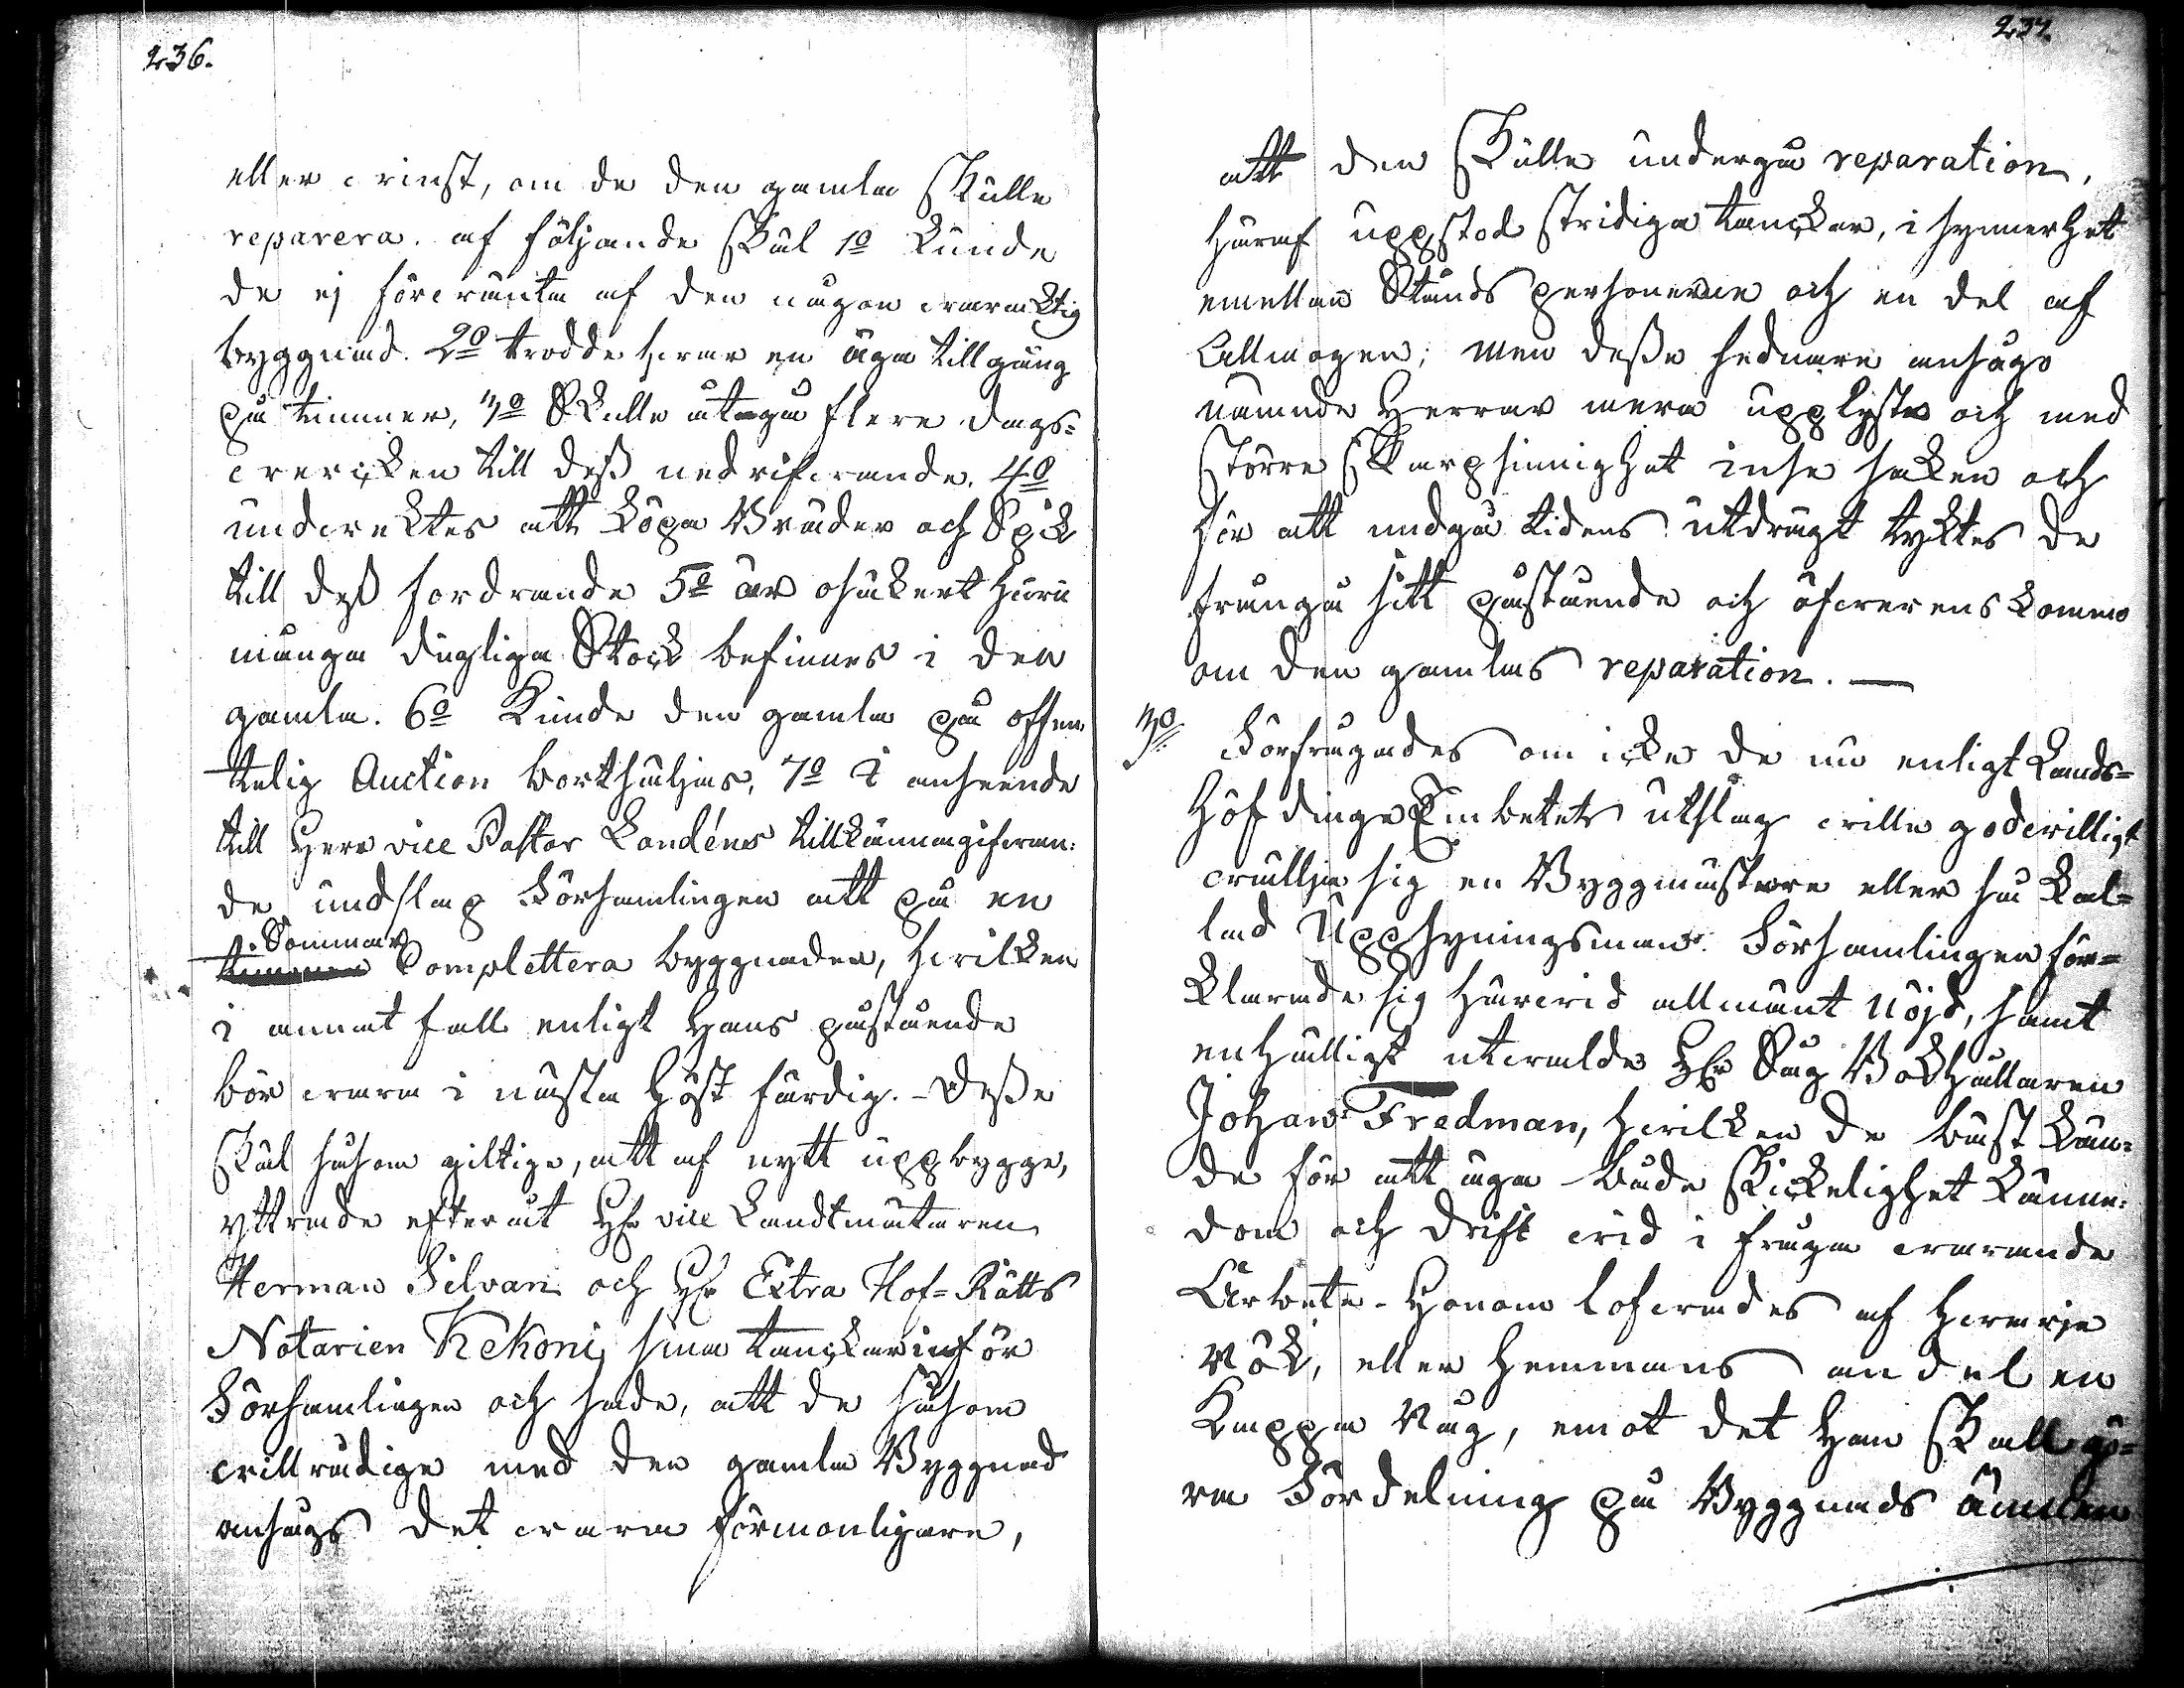 236.
eller vinst, om de den gamla skulle
reparera. af följande skäl 1o kunde
de ej förvänta af den någon varaktig
byggnad. 2o trodde hvar en äga tillgång
på timmer, 3o Skulle åtagå flere dags-
vercken till dess nedrifvande. 4o
undvektes att köpa Bräder och Spik
till dess fordrande 5o är osäkert huru
många dugliga Stock befinnes i den
gamla. 6o Kunde den gamla på offen
telig Auction borthsäljas, 7o I anseende
till Herr vice Pastor Landéns tillkännagifvan-
de undslap Församlingen att på en
Sommar
Complettera byggnaden, hvilken
i annat fall enligt Hans påstående
bör vara i nästa höst färdig. – Desse
skäl såsom giltige, att af nytt uppbygge,
yttrade efteråt Hr vice Landtmätaren
Herman Silvan och Hr Extra Hof-Rätts
Notarien Kekoni sina tanckar inför
Församlingen och sade, att de såsom
villrådige med den gamla Byggnad
ansågs det vara förmonligare,
237.
att den skulle undergå reparation,
häraf uppstod stridiga tanckar, i synnerhet
emellan Stånds personerne och en del af
Allmogen; men desse sednare ansågo
nämnde Herrar mera upplyste och med
större skarpsinnighet inse saken och
för att undgå tidens utdrägt tyktes de
frångå sitt påstående och öfverens kommo
om den gamlas reparation. —
3o Förfrågades om icke de nu enligt Lands-
höfdinge Embetets utslag ville godvilligt
välja sig en Byggmästare eller så kal-
lad Uppsyningsman. Församlingen för-
klarade sig härvid allmänt nöjd, samt
enhälligt utvalde Hr Såg Bokhållaren
Johan Fredman, hvilken de bäst kän-
de för att äga både skickelighet känne-
dom och drift vid i fråga varande
Arbete. Honom lofvades af hvarje
Rök, eller hemmans andel en
Kappa Råg, emot det han skall gö-
ra Fördelning på Byggnads ämnen